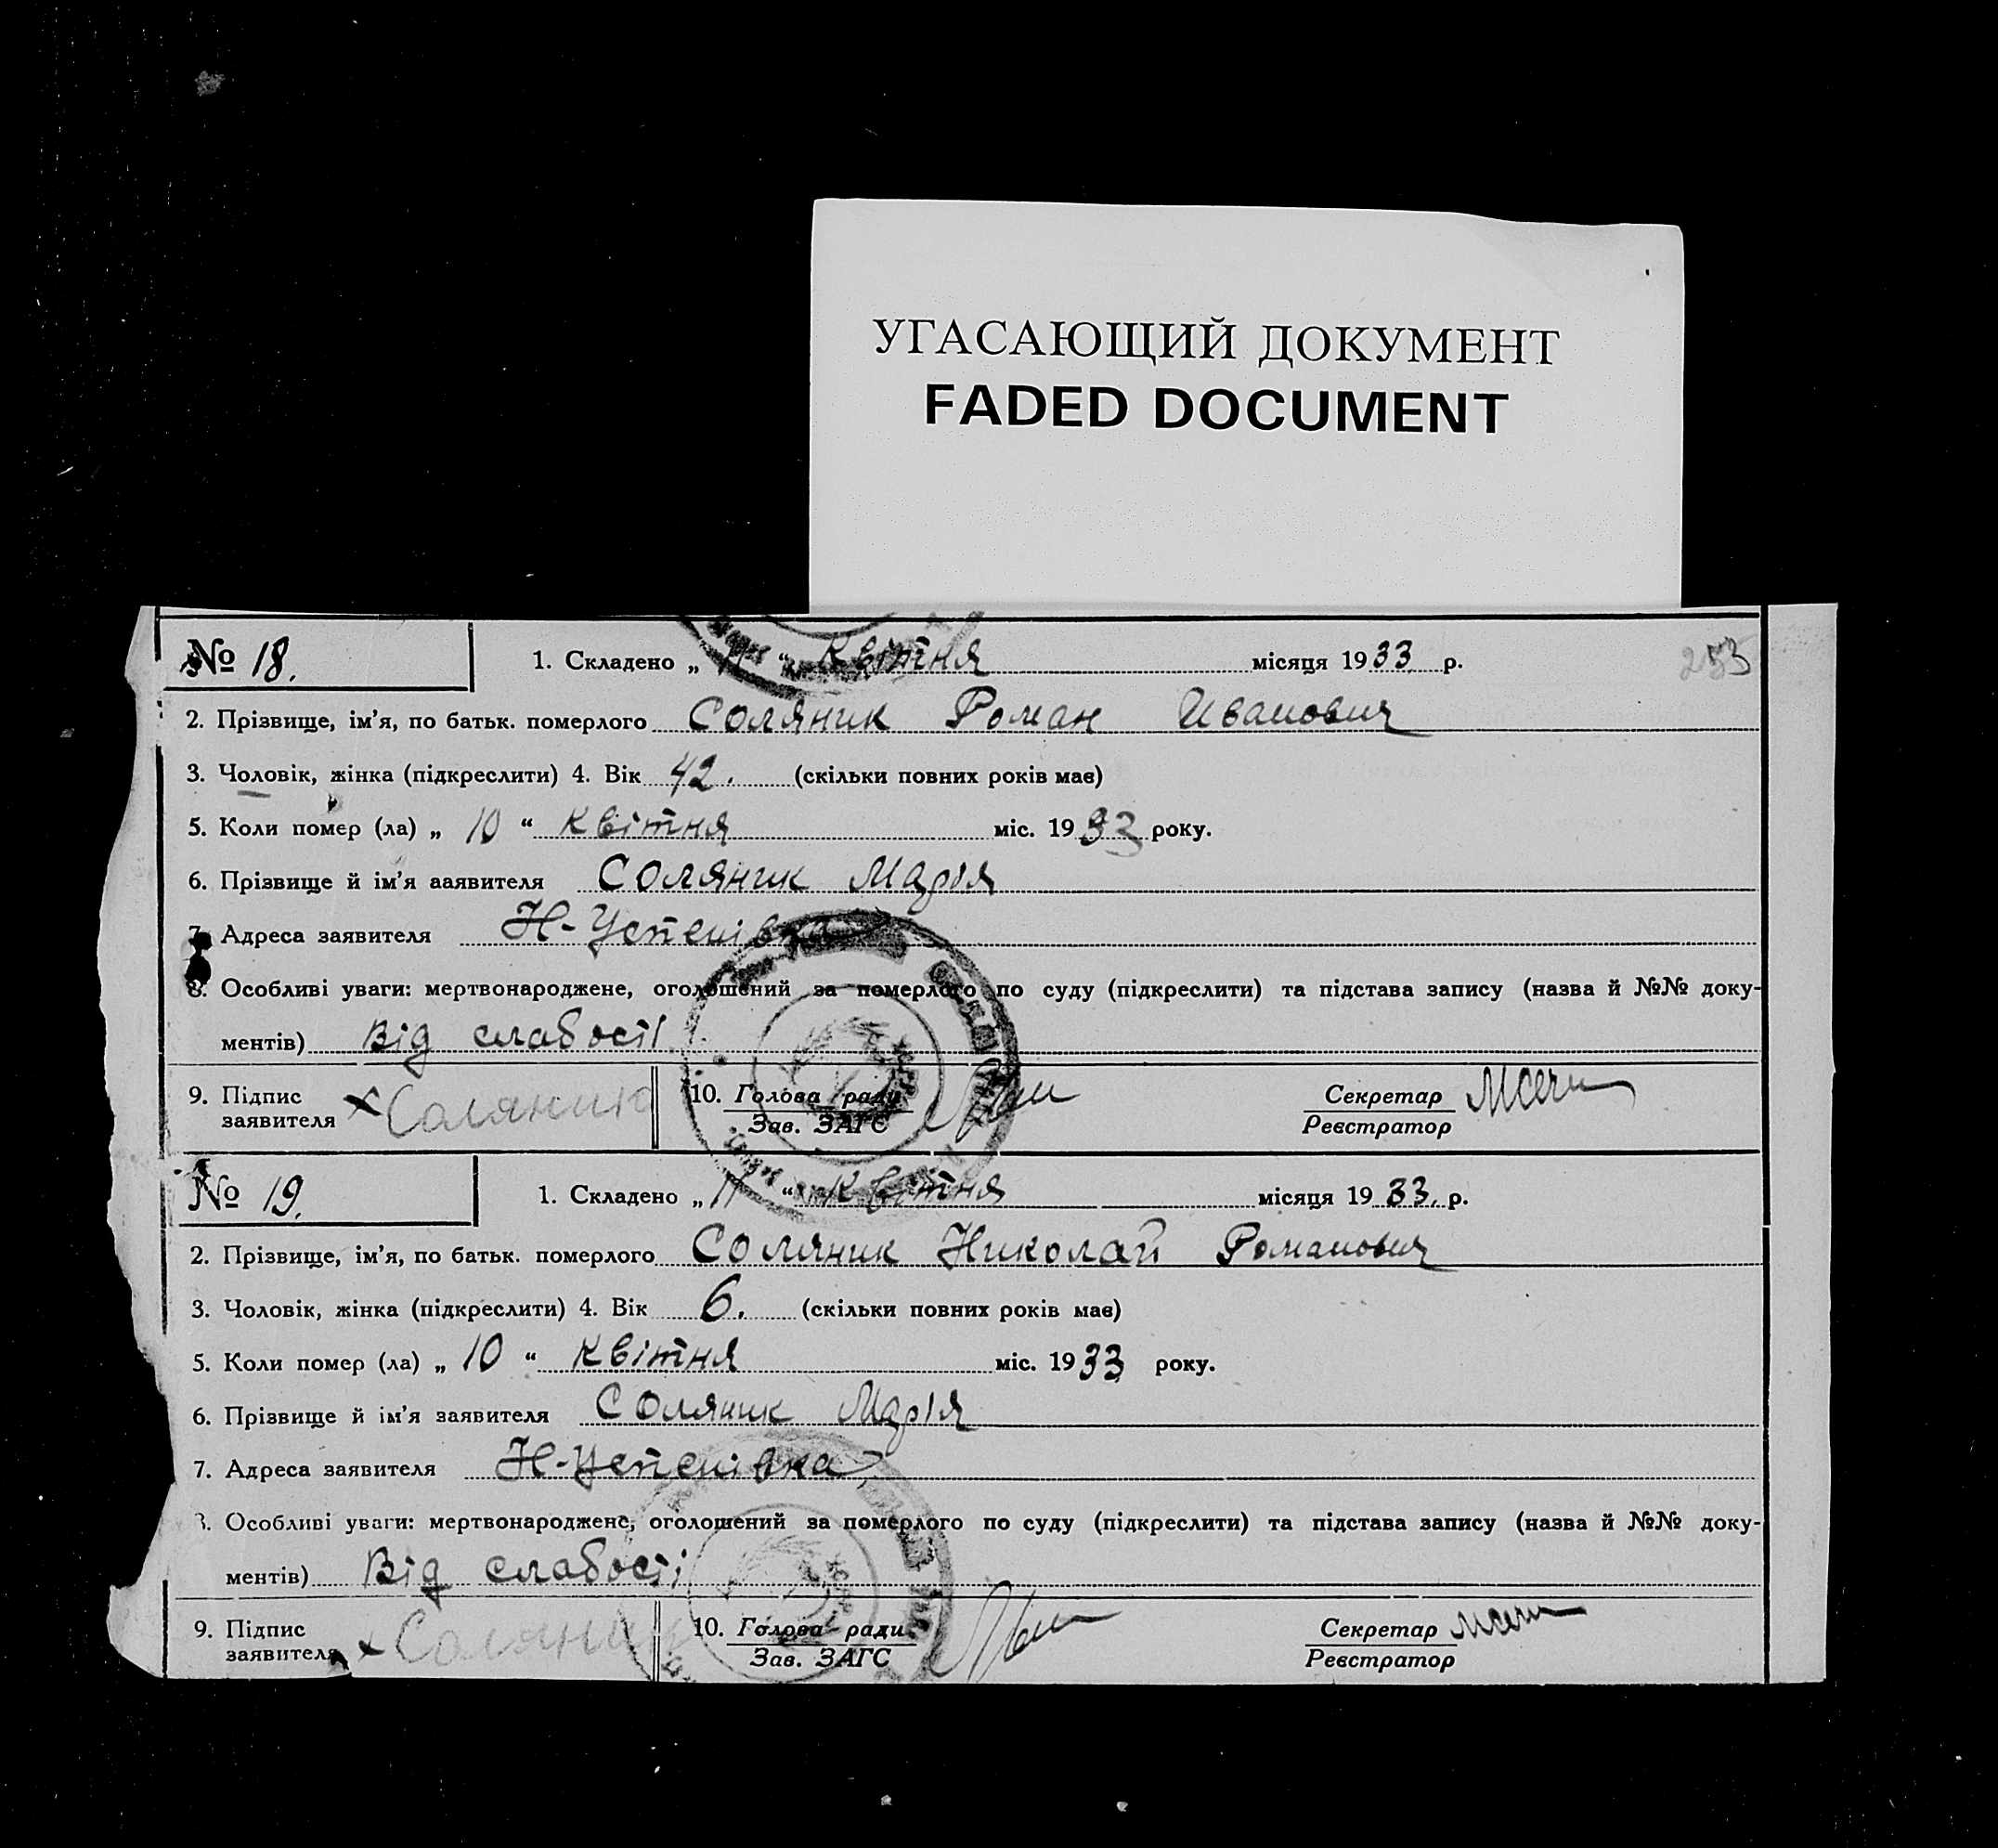 УГАСАЮЩИЙ ДОКУМЕНТ
FADED DOCUMENT
№ 18. 1. Складено „ 11 “ Квітня місяця 1933 р. 253
2. Прізвище, ім’я, по батьк. померлого Соляник Роман Иванович
3. Чоловік, жінка (підкреслити) 4. Вік 42. (скільки повних років має)
5. Коли помер (ла) „ 10 “ квітня міс. 1933 року.
6. Прізвище й ім’я заявителя Соляник Марія
7. Адреса заявителя Н-Успенівка
8. Особливі уваги: мертвонароджене, оголошений за померлого по суду (підкреслити) та підстава запису (назва й №№ доку-
ментів) Від слабості
9. Підпис заявителя х Соляник 10. Голова ради Секретар
Зав. ЗАГС Реєстратор
№ 19. 1. Складено „ 11 “ Квітня місяця 1933. р.
2. Прізвище, ім’я, по батьк. померлого Соляник Николай Романович
3. Чоловік, жінка (підкреслити) 4. Вік 6. (скільки повних років має)
5. Коли помер (ла) „ 10 “ квітня міс. 1933 року.
6. Прізвище й ім’я заявителя Соляник Марія
7. Адреса заявителя Н-Успенівка
8. Особливі уваги: мертвонароджене, оголошений за померлого по суду (підкреслити) та підстава запису (назва й №№ доку-
ментів) Від слабості
9. Підпис заявителя х Соляник 10. Голова ради Секретар
Зав. ЗАГС Реєстратор